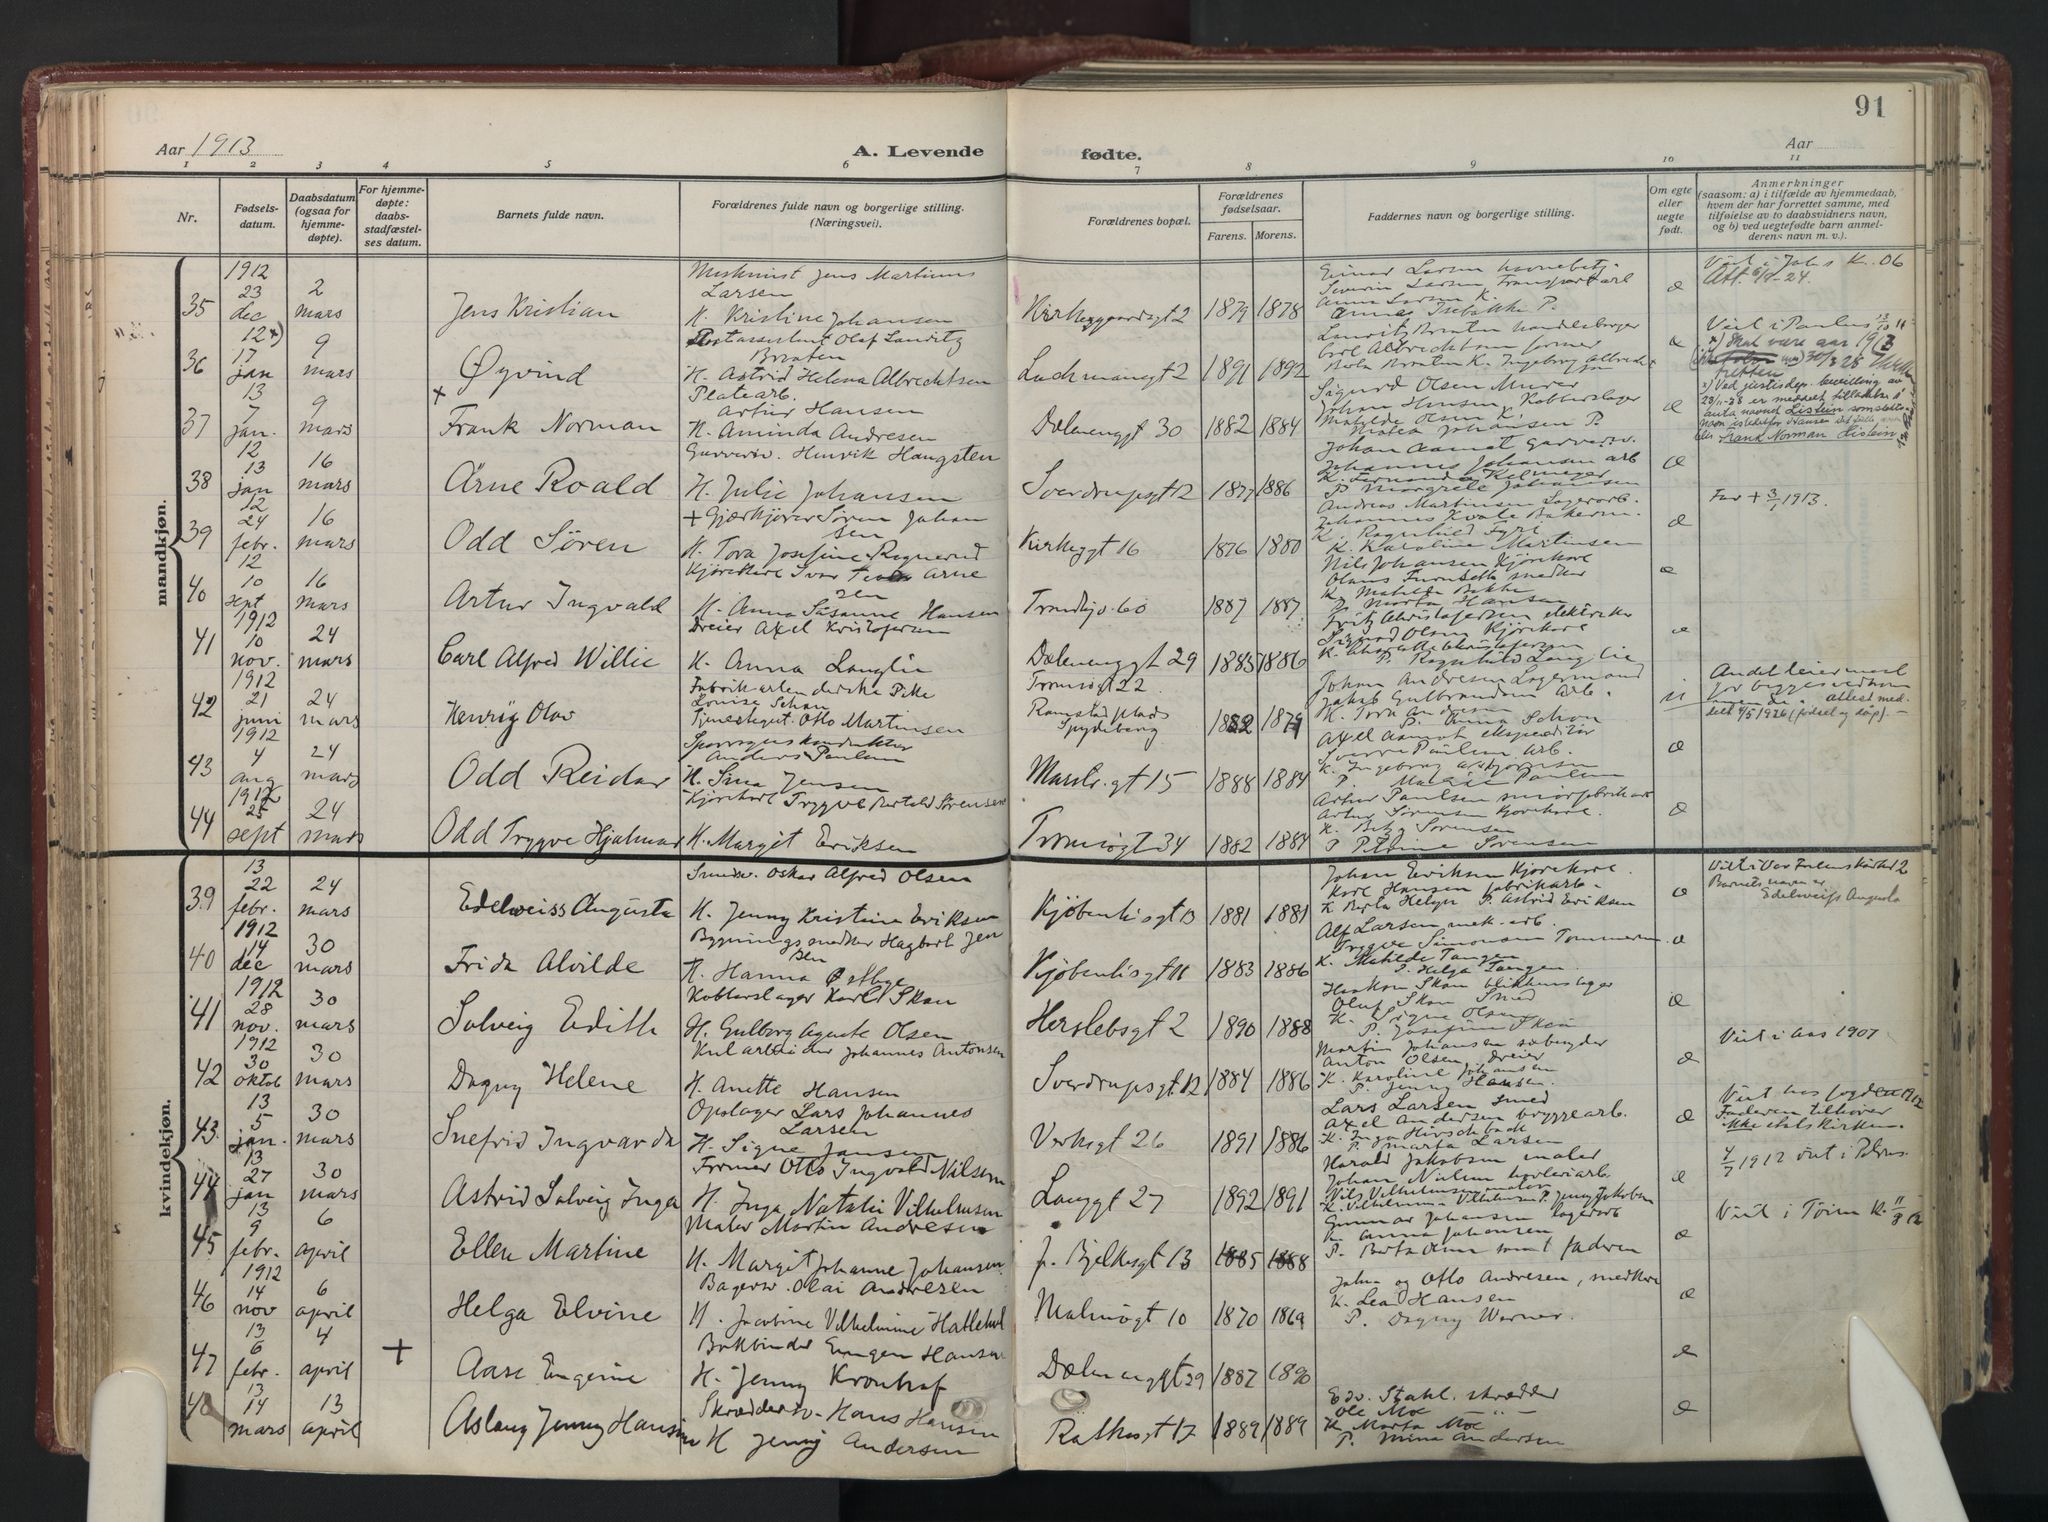 91
Aar 1913
A. Levende
fødte.
Aar
1 2 3 4 5 6 7 8 9 10 11
Nr.
Fødsels-
datum.
Daabsdatum
(ogsaa for
hjemme-
døpte).
For hjemme-
døpte:
daabs-
stadfæstel-
ses datum.
Barnets fulde navn.
Forældrenes fulde navn og borgerlige stilling.
(Næringsvei).
Forældrenes bopæl.
Forældrenes
fødselsaar.
Farens. Morens.
Faddernes navn og borgerlige stilling.
Om egte
eller
uegte
født.
Anmerkninger
(saasom: a) i tilfælde av hjemmedaab,
hvem der har forrettet samme, med
tilføielse av to daabsvidners navn,
og b) ved uegtefødte barn anmel-
derens navn m. v.).
mandkjøn.
35 1912 23 dec 2 mars Jens Kristian
Maskinist Jens Martinus
Larsen
H. Kristine Johansen
Kirkegaardsgt 2 1879 1878
Einar Larsen
Severin Larsen Transportarb
Anna Larsen K.
Anna P.
æ
Viet i Jobs K. 06
Att. 24.
36 12 x) 17 jan 9 mars Øyvind
Postassistent Olaf Lauritz
Braaten
H. Astrid Helena Albrechtsen
Lackmansgt 2 1891 1892
Lauritz Braaten handelsborger
Carl Albrechtsen former
Braaten K. Ingeborg Albrecht
æ
Viet i Paulus 13/10 11
x) skal være aar 1913
37 13 7 jan. 9 mars + Frank Norman
Platearb.
Artur Hansen
H. Aminda Andresen
Dælenenggt 30 1882 1884
Sigurd Olsen Murer
Johan Hansen Kobberslager
Matilde Olsen K.
Johansen P.
æ
x) Ved justisdep. bevilling av
23/11-28 er meddelt tilladelse i
anta navnet Listein som slekts-
navn istedetfor Hansen
Frank Norman Listein
38 12 13 jan 16 mars Arne Roald
Garversv. Henrik Haugsten
H. Julie Johansen
Sverdrupsgt 12 1877 1886
Johan Aamot Garversv.
Johannes Johansen arb
K. Fernanda
P. Margrete Johansen
æ
39 12 24 febr. 16 mars Odd Sören
+ Gjærkjører Sören Johan
sen
H. Tora Josefine Rognerud
Kirkeggt 16 1876 1880
Andreas Martinsen Lagerarb.
Johannes Kvale Bakerm.
K. Ragnhild
K. Karoline Martinsen
æ
Far + 3/1 1913.
40 12 10 sept 16 mars Artur Ingvald
Kjørekarl Ivar Arne
sen
H. Anna Susanne Hansen
Trondhjv. 60 1887 1887
Nils Johansen Kjørekarl
Olaus snedker
K. Matilde Bakke
P. Marta Hansen
æ
41 1912 10 nov. 24 mars Carl Alfred Willie
Dreier Axel Kristofersen
H. Anna Langlie
Dælenenggt 29 1885 1886
Fritz Christofersen elektriker
Sigurd Olsen Kjørekarl
K. Charlotte Christofersen
P. Ragnhild Langlie
æ
42 1912 21 juni 24 mars Henrÿ Olav
Fabrikarbeiderske Pike
Louise Schau
Tjenestegut. Otto Martinsen
Tromsøgt 22
Ramstadplads
Spydeberg
1882 1879
Johan Andresen Lagermand
Jakob Gulbrandsen Arb.
K. Tora Andresen
P. Anna Schou
u
Andet leiermaal
for begges vedkom
attest med-
delt 4/5 1926 (fødsel og dåp). -
43 1912 4 aug 24 mars Odd Reidar
Sporveiskonduktør
Anders Paulsen
H. Sina Jensen
Marstr.gt 15 1888 1884
Axel Aamot ekspeditør
Sverre Paulsen Arb.
K. Ingeborg Asbjørnsen
P. Paulsen
æ
44 1912 25 sept 24 mars Odd Tryggve Hjalmar
Kjørekarl Tryggve Bertold Sørensen
H. Margit Eriksen
Tromsøgt 34 1882 1884
Artur Paulsen smørfabrikarb
Artur Sörensen Kjørekarl.
K. Betzy Sorensen
P. Petrine Sorensen
æ
kvindekjøn.
39 13 22 febr. 24 mars Edelweiss Augusta
Smedsv. Oskar Alfred Olsen
H. Jenny Kristine Eriksen
Kjøbenh.sgt 13 1881 1881
Johan Eriksen Kjørekarl.
Karl Hansen fabrikarb.
K Berta Helgesen P. Astrid Eriksen
æ
Barnets navn er
Edelweiss Augusta
40 1912 14 dec 30 mars Frida Alvilde
Bygningssnedker Hagbart Jen
sen
H. Hanna Østbye
Kjøbenh.sgt 11 1883 1886
Alf Larsen mek. arb
Tryggve Simonsen Tømmerm.
K. Matilde Tangen
P. Helga Tangen.
æ
41 1912 28 nov. 30 mars Solveig Edith
Kobberslager Karl Skau
H. Gulborg Agate Olsen
Herslebsgt 2 1890 1888
Haakon Skau blikkenslager
Oluf Skau Smed
K. Signe Olsen
P. Josefine Skau
æ
42 1912 30 oktob 30 mars Dagny Helene
Kularbeider Johannes Antonsen
H. Anette Hansen
Sverdrupsgt 12 1884 1886
Martin Johansen
Anton Olsen, dreier
K. Karoline Johansen
P. Jenny Hansen.
æ
Viet i Aas 1907
43. 13 5 jan. 30 mars Snefrid Ingvarda
Opslager Lars Johannes
Larsen
H. Signe Jansen
Verksgt 26 1891 1886
Lars Larsen Smed
Axel Andersen bryggearb.
K. Inga Hirschback
P. Marta Larsen
æ
Viet hos fogden 1912
Faderen tilhører
ikke statskirken.
44 13 27 jan 30 mars Astrid Solveig Inga
Former Otto Ingvald Nilsen
H. Inga Natalie Vilhelmsen
Langgt 27 1892 1891
Harald Jakobsen maler
Johan Nielsen
Nils Vilhelmsen
K. Vilhelmina Vilhelmsen P. Jenny Jakobsen
æ
4/7 1912 viet i Petrus.
45 13 9 febr. 6 april Ellen Martine
Maler Martin Andresen
H. Margit Johanne Johansen
J. Bjelkesgt 13 1885 1888
Gunnar Johansen lagerarb
K. Anna Johansen
P. Berta Olsen samt faderen
æ
Viet i Tøien K. 11/8 12
46 1912 14 nov 6 april Helga Elvine
Bagersv. Olai Andresen
H. Jacobine Vilhelmine Hallekul
Malmøgt 10 1870 1869
John og Otto Andresen, snedkere
K. Lea Hansen
P. Dagny Werner.
æ
47 13 6 febr. 4 april + Aase Eugenie
Bokbinder Eugen Hansen
H. Jenny Krontraf
Dælenenggt 29 1887 1890
æ
48 13 14 mars 13 april Aslaug Jenny Hansen
Skræddersv. Hans Hansen
H Jenny Andersen
Rathkesgt 17 1889 1889
Edv. Stahl. skrædder
Ole Moe - " -
K Marta Moe
P. Mina Andersen
æ